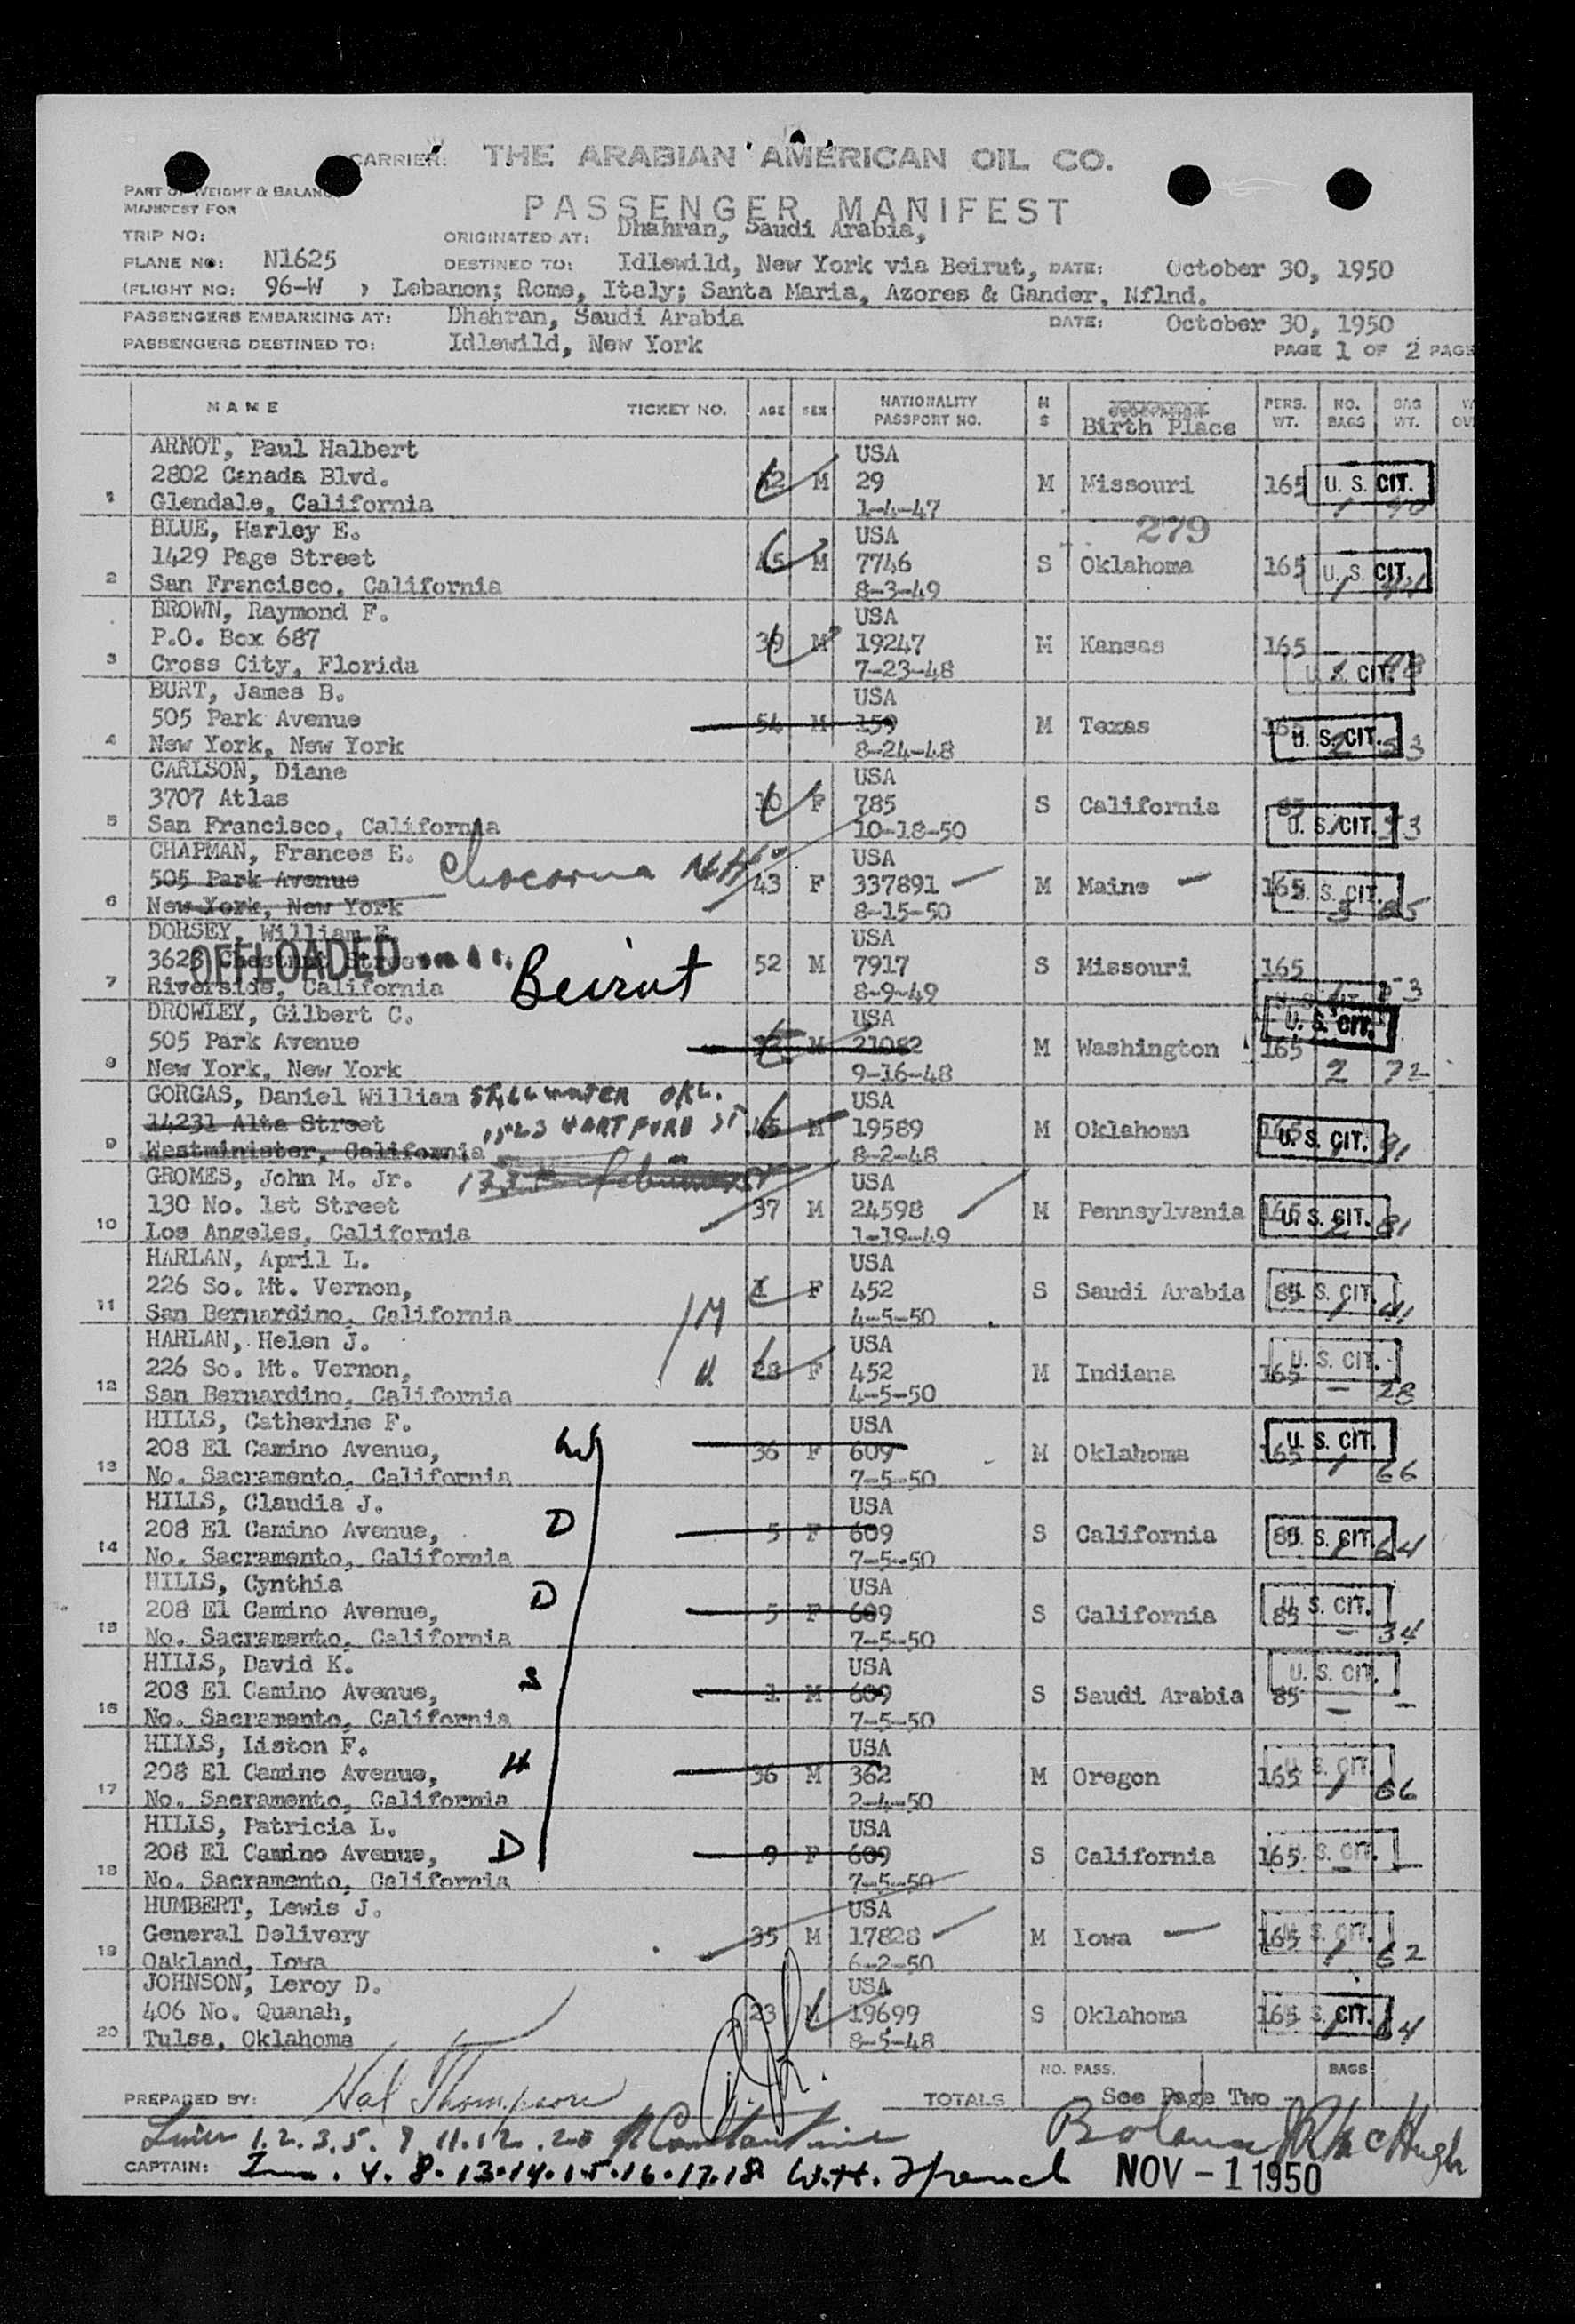 CARRIER: THE ARABIAN AMERICAN OIL CO.
PART OF WEIGHT & BALANCE
MANIFEST FOR
PASSENGER MANIFEST
TRIP NO: ORIGINATED AT: Dhahran, Saudi Arabia,
PLANE NO: N1625 DESTINED TO: Idlewild, New York via Beirut, DATE: October 30, 1950
(FLIGHT NO: 96-W ) Lebanon; Rome, Italy; Santa Maria, Azores & Gander, Nflnd.
PASSENGERS EMBARKING AT: Dhahran, Saudi Arabia DATE: October 30, 1950
PASSENGERS DESTINED TO: Idlewild, New York
PAGE 1 OF 2 PAGE
NAME TICKET NO. AGE SEX NATIONALITY PASSPORT NO. M S Birth Place PERS. WT. NO. BAGS BAG WT.
ARNOT, Paul Halbert USA
2802 Canada Blvd. M 29 M Missouri 165 U. S. CIT.
1 Glendale, California 1-4-47 1 40
279
BLUE, Harley E. USA
1429 Page Street 45 M 7746 S Oklahoma 165 U. S. CIT.
2 San Francisco, California 8-3-49 1 44
BROWN, Raymond F. USA
P.O. Box 687 39 M 19247 M Kansas 165
3 Cross City, Florida 7-23-48 U. S. CIT.
BURT, James B. USA
505 Park Avenue 54 M 159 M Texas 165
4 New York, New York 8-24-48 U. S. CIT. 2 53
CARLSON, Diane USA
3707 Atlas 10 F 785 S California 85
5 San Francisco, California 10-18-50 U. S. CIT. 33
CHAPMAN, Frances E. Chocorua NH USA
505 Park Avenue 43 F 337891 M Maine 165 U. S. CIT.
6 New York, New York 8-15-50 3
DORSEY, William E. USA
3623 Chestnut Street OFFLOADED Beirut 52 M 7917 S Missouri 165
7 Riverside, California 8-9-49 U. S. CIT. 53
DROWLEY, Gilbert C. USA U. S. CIT.
505 Park Avenue M 21082 M Washington 165
8 New York, New York 9-16-48 2 72
GORGAS, Daniel William STILLWATER OKL. USA
14231 Alta Street 1523 HARTFORD ST 45 M 19589 M Oklahoma 165 U. S. CIT.
9 Westminister, California 8-2-48 1 91
GROMES, John M. Jr. USA
130 No. 1st Street 37 M 24598 M Pennsylvania 165 U. S. CIT.
10 Los Angeles, California 1-19-49 2 81
HARLAN, April L. USA
226 So. Mt. Vernon, 1 F 452 S Saudi Arabia 85 U. S. CIT.
11 San Bernardino, California M 4-5-50 1 41
HARLAN, Helen J. USA
226 So. Mt. Vernon, 28 F 452 M Indiana 165 U. S. CIT.
12 San Bernardino, California 4-5-50 - 28
HILLS, Catherine F. USA
208 El Camino Avenue, W 36 F 609 M Oklahoma 165 U. S. CIT.
13 No. Sacramento, California 7-5-50 1 66
HILLS, Claudia J. USA
208 El Camino Avenue, D 5 F 609 S California 85 U. S. CIT.
14 No. Sacramento, California 7-5-50 1 64
HILLS, Cynthia USA
208 El Camino Avenue, D 5 F 609 S California 85 U. S. CIT.
15 No. Sacramento, California 7-5-50 - 34
HILLS, David K. USA
208 El Camino Avenue, S 1 M 609 S Saudi Arabia 85 U. S. CIT.
16 No. Sacramento, California 7-5-50 - -
HILLS, Liston F. USA
208 El Camino Avenue, H 36 M 362 M Oregon 165 U. S. CIT.
17 No. Sacramento, California 2-4-50 1 66
HILLS, Patricia L. USA
208 El Camino Avenue, D 9 F 609 S California 165 U. S. CIT.
18 No. Sacramento, California 7-5-50 - -
HUMBERT, Lewis J. USA
General Delivery 35 M 17828 M Iowa 165 U. S. CIT.
19 Oakland, Iowa 6-2-50 1 62
JOHNSON, Leroy D. USA
406 No. Quanah, 23 M 19699 S Oklahoma 165 S. CIT.
20 Tulsa, Oklahoma 8-5-48 1 64
NO. PASS. BAGS
PREPARED BY: Hal Thompson TOTALS - See Page Two -
Lines 1. 2. 3. 5. 9. 11. 12. 20 Constantine
CAPTAIN: 4. 8. 13. 14. 15. 16. 17. 18 W.H. NOV - 1 1950